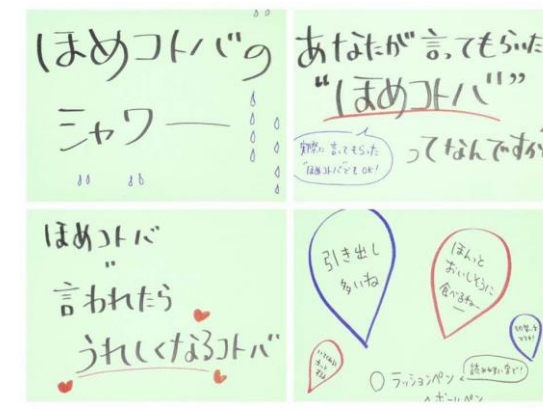 ほめコトバの
シャワー
あなたが言ってもらいた
“ほめコトバ”
ってなんですか
実際に言ってもらった
“ほめコトバ”でもOK!
ほめコトバ
＝
言われたら
うれしくなるコトバ
引き出し
多いね
ほんっと
おいしそうに
食べるねー
○ ラッションペン
読めやすい字で!
ボールペン